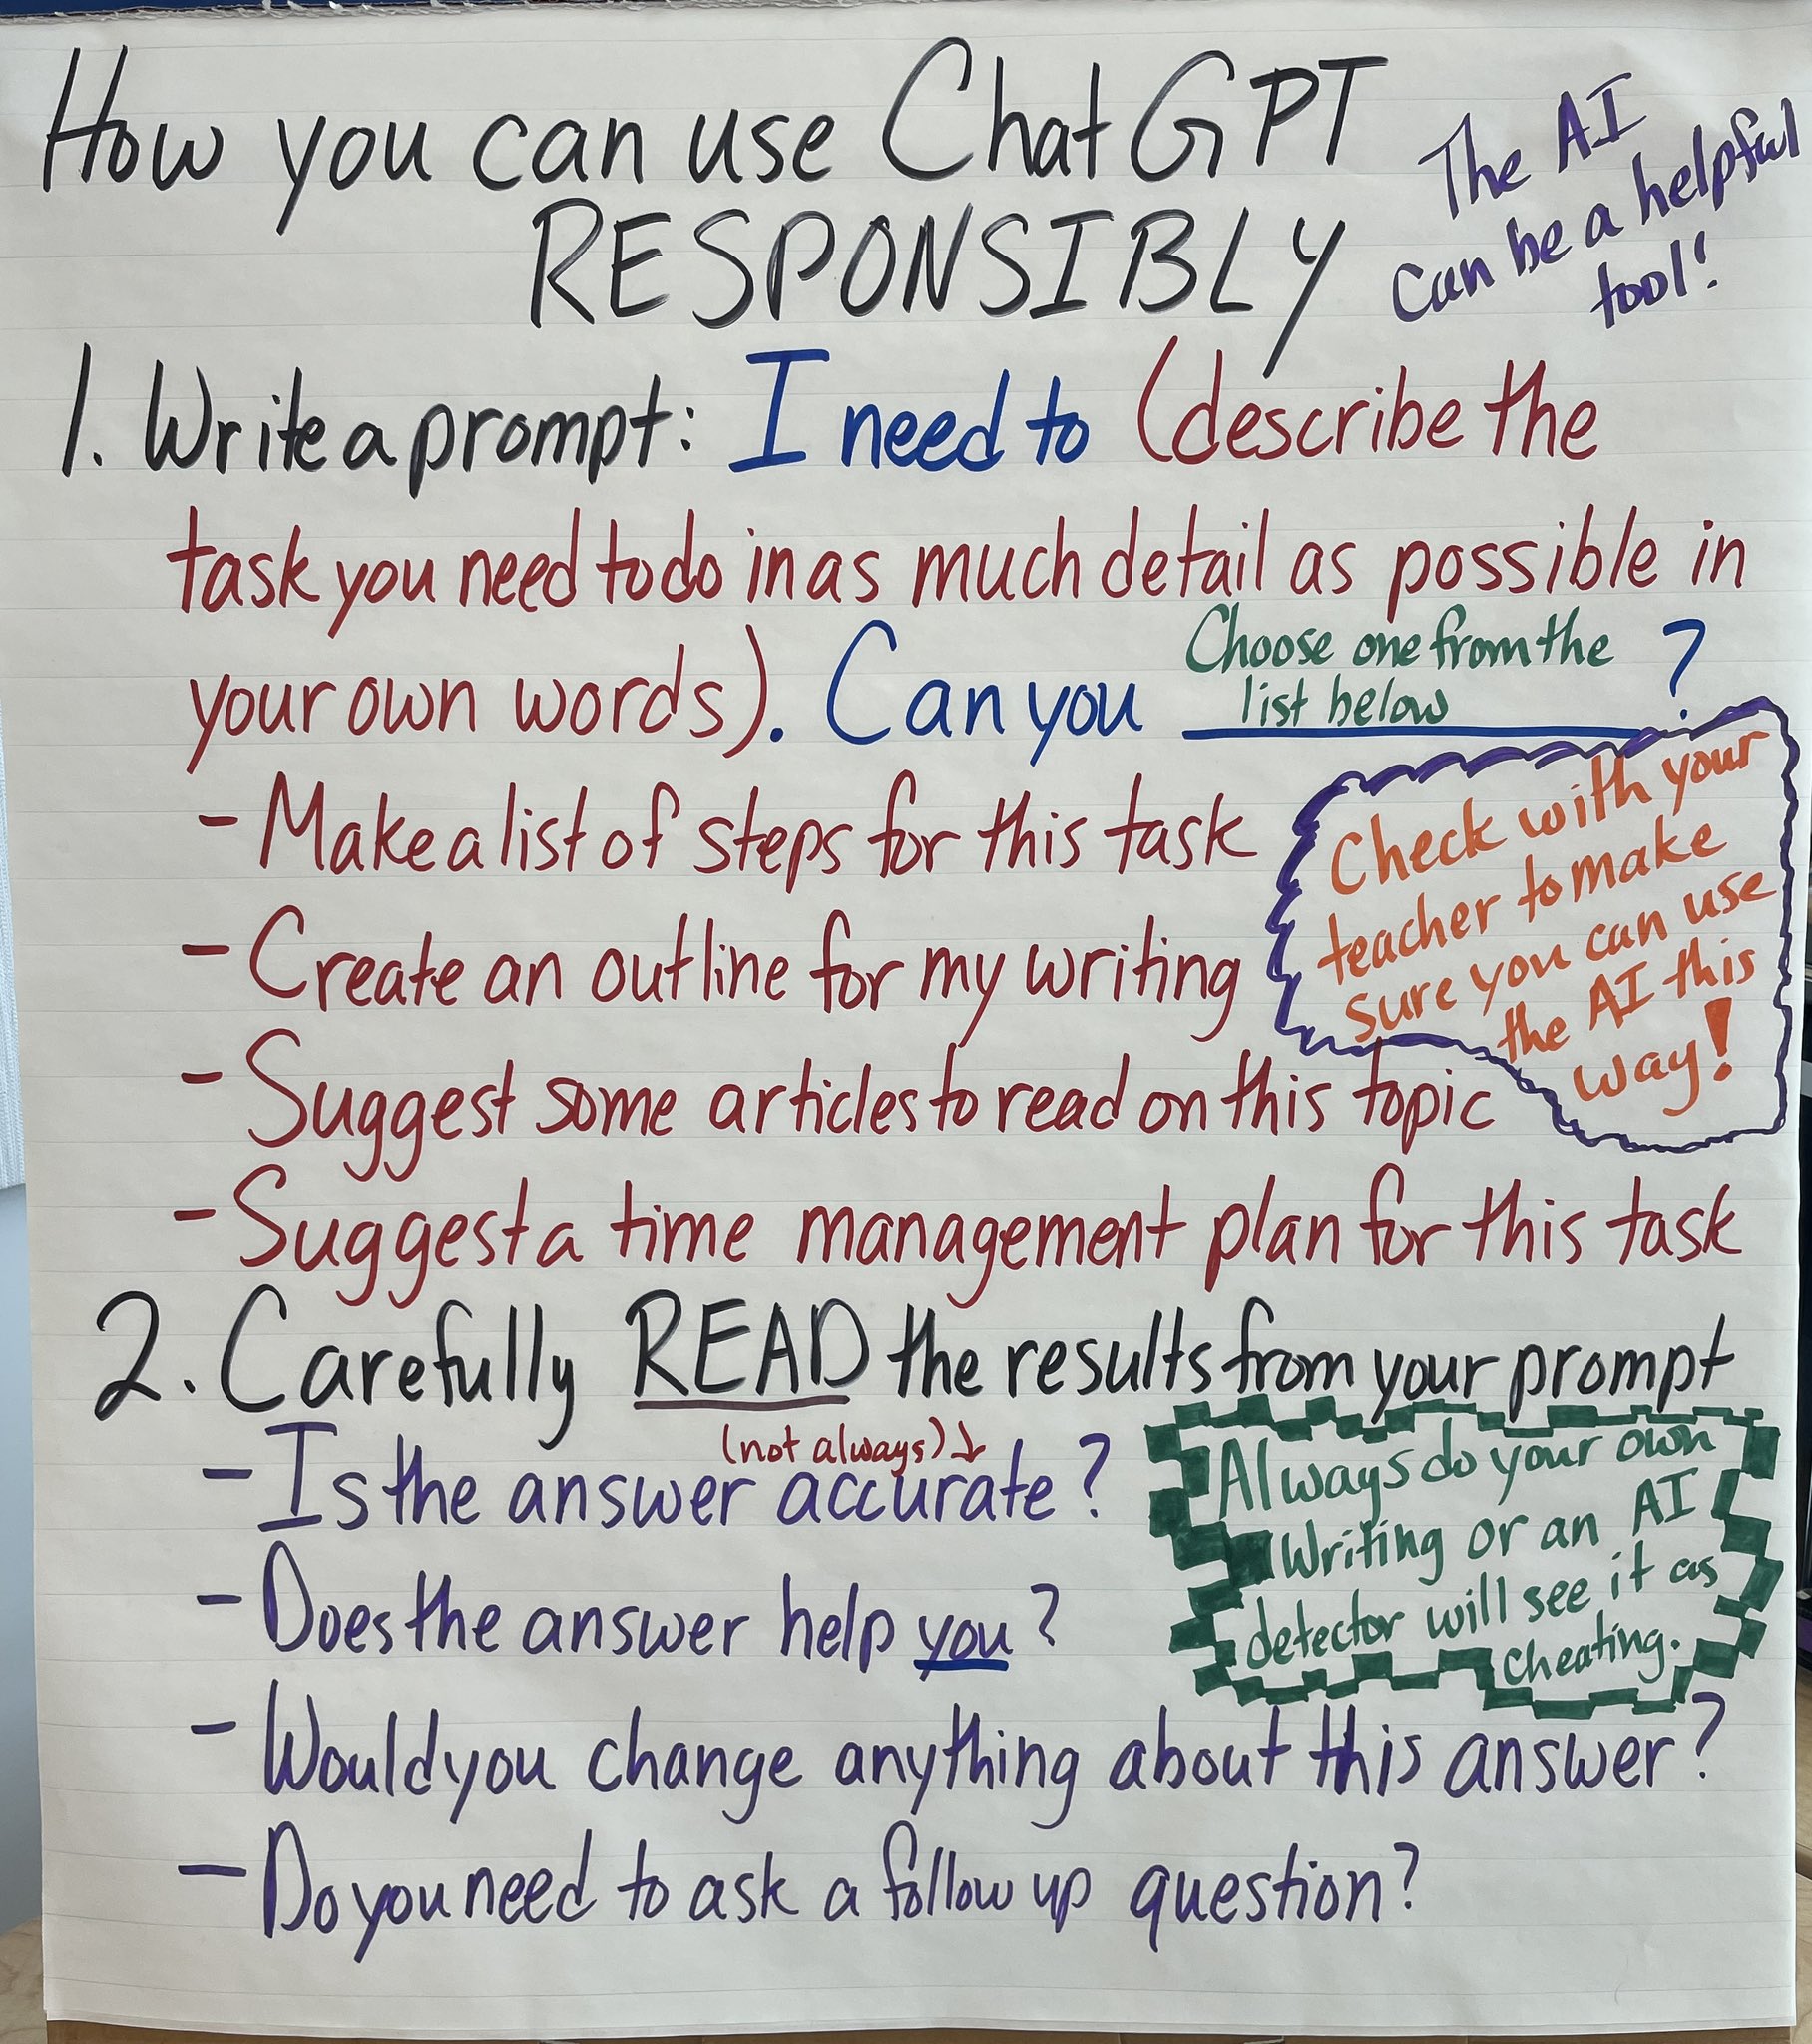 How you can use ChatGPT
RESPONSIBLY
The AI
can be a helpful
tool!
1. Write a prompt: I need to (describe the
task you need to do in as much detail as possible in
your own words). Can you ___?
Choose one from the
list below
- Make a list of steps for this task
- Create an outline for my writing
- Suggest some articles to read on this topic
- Suggest a time management plan for this task
Check with your
teacher to make
sure you can use
the AI this
way!
2. Carefully READ the results from your prompt
(not always)↓
- Is the answer accurate?
- Does the answer help you?
- Would you change anything about this answer?
- Do you need to ask a follow up question?
Always do your own
Writing or an AI
detector will see it as
cheating.